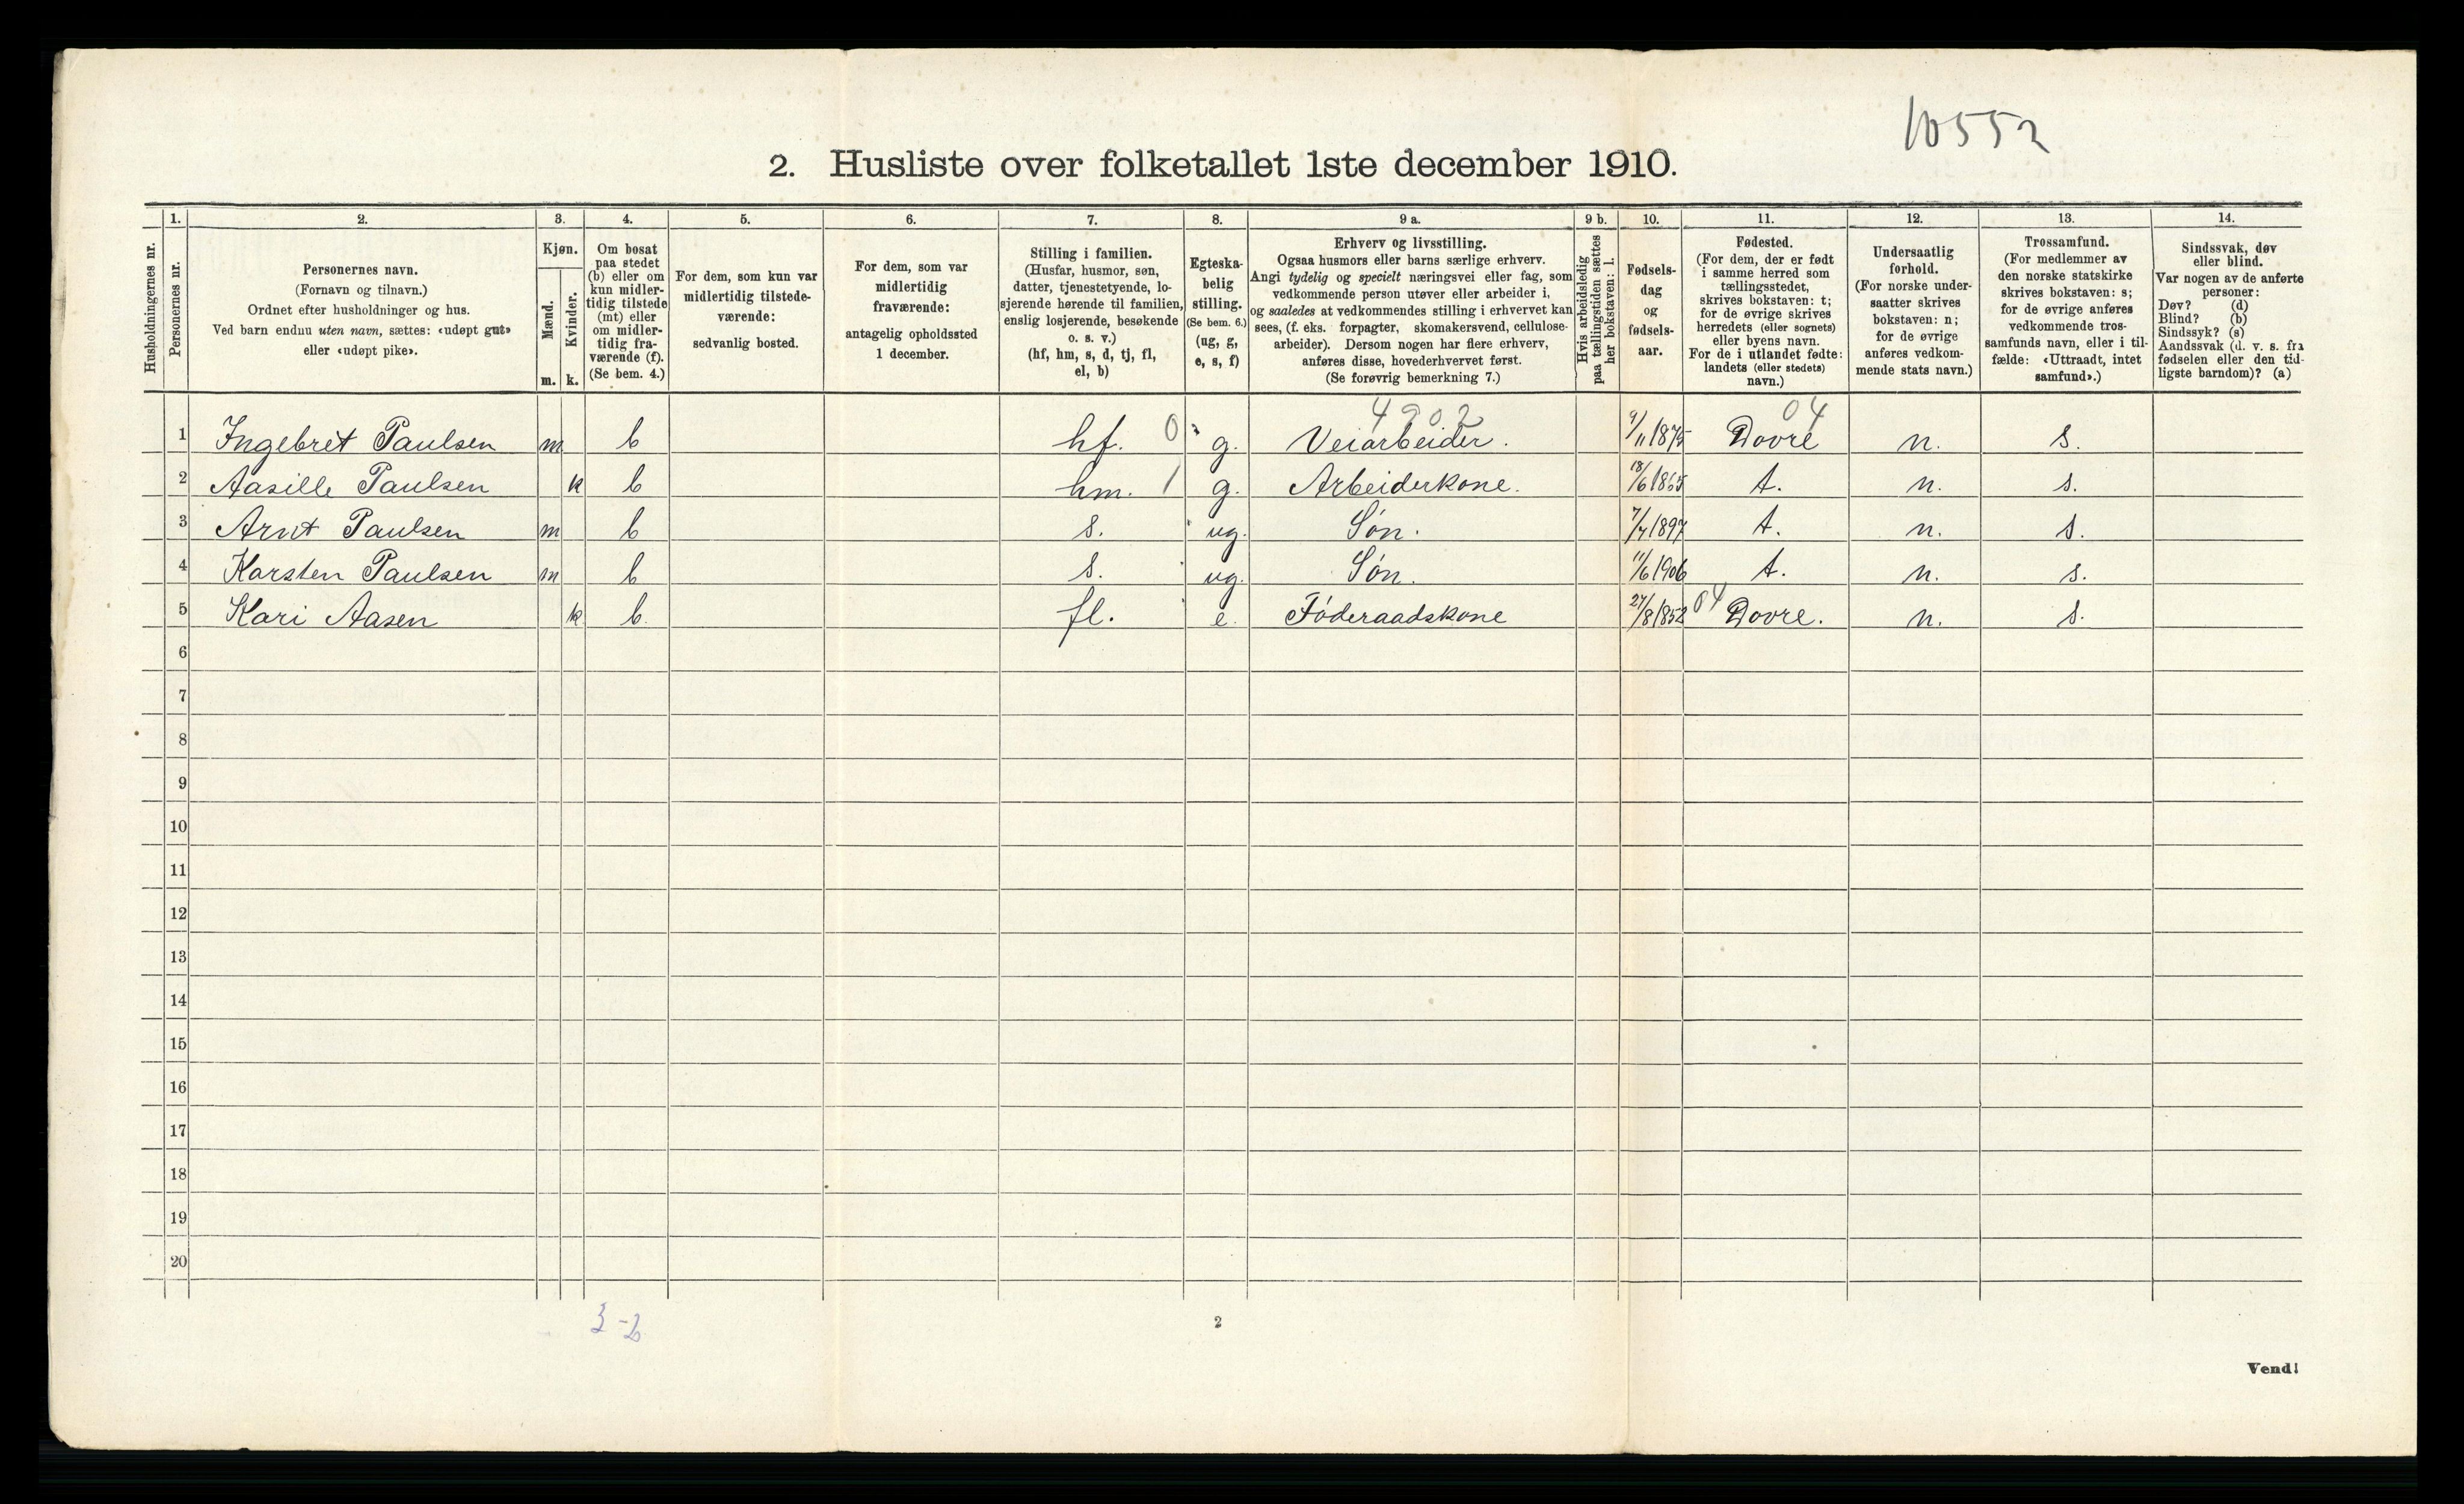 10552
2. Husliste over folketallet 1ste december 1910.
Husholdningernes nr.
1.
Personernes nr.
2.
Personernes navn.
(Fornavn og tilnavn.)
Ordnet efter husholdninger og hus.
Ved barn endnu uten navn, sættes: «udøpt gut»
eller «udøpt pike».
3.
Kjøn.
Mænd.
m.
Kvinder.
k.
4.
Om bosat
paa stedet
(b) eller om
kun midler-
tidig tilstede
(mt) eller
om midler-
tidig fra-
værende (f).
(Se bem. 4.)
5.
For dem, som kun var
midlertidig tilstede-
værende:
sedvanlig bosted.
6.
For dem, som var
midlertidig
fraværende:
antagelig opholdssted
1 december.
7.
Stilling i familien.
(Husfar, husmor, søn,
datter, tjenestetyende, lo-
sjerende hørende til familien,
enslig losjerende, besøkende
o. s. v.)
(hf, hm, s, d, tj, fl,
el, b)
8.
Egteska-
belig
stilling.
(Se bem. 6.)
(ug, g,
e, s, f)
9 a.
Erhverv og livsstilling.
Ogsaa husmors eller barns særlige erhverv.
Angi tydelig og specielt næringsvei eller fag, som
vedkommende person utøver eller arbeider i,
og saaledes at vedkommendes stilling i erhvervet kan
sees, (f. eks. forpagter, skomakersvend, cellulose-
arbeider). Dersom nogen har flere erhverv,
anføres disse, hovederhvervet først.
(Se forøvrig bemerkning 7.)
9 b.
Hvis arbeidsledig
paa tællingstiden sættes
her bokstaven: l.
10.
Fødsels-
dag
og
fødsels-
aar.
11.
Fødested.
(For dem, der er født
i samme herred som
tællingsstedet,
skrives bokstaven: t;
for de øvrige skrives
herredets (eller sognets)
eller byens navn.
For de i utlandet fødte:
landets (eller stedets)
navn.)
12.
Undersaatlig
forhold.
(For norske under-
saatter skrives
bokstaven: n;
for de øvrige
anføres vedkom-
mende stats navn.)
13.
Trossamfund.
(For medlemmer av
den norske statskirke
skrives bokstaven: s;
for de øvrige anføres
vedkommende tros-
samfunds navn, eller i til-
fælde: «Uttraadt, intet
samfund».)
14.
Sindssvak, døv
eller blind.
Var nogen av de anførte
personer:
Døv? (d)
Blind? (b)
Sindssyk? (s)
Aandssvak (d. v. s. fra
fødselen eller den tid-
ligste barndom)? (a)
4902 04
1 Ingebret Paulsen m b hf. 0 g. Veiarbeider. 9/11 1875 Dovre n. s.
2 Aasille Paulsen k b hm. 1 g. Arbeiderkone. 18/6 1865 t. n. s.
3 Arnt Paulsen m b s. ug. Søn. 7/7 1897 t. n. s.
4 Karsten Paulsen m b s. ug. Søn. 11/6 1906 t. n. s.
5 Kari Aasen k b. fl. e. Føderaadskone 27/8 1852 04 Dovre. n. s.
6
7
8
9
10
11
12
13
14
15
16
17
18
19
20
3-2
2
Vend!